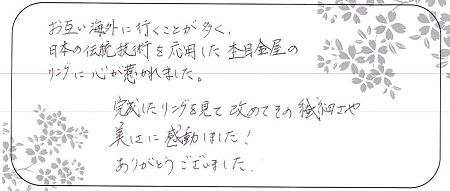 お互い海外に行くことが多く、
日本の伝統技術を応用した杢目金屋の
リングに心が惹かれました。
完成したリングを見て改めてその繊細さや
美しさに感動しました！
ありがとうございました。